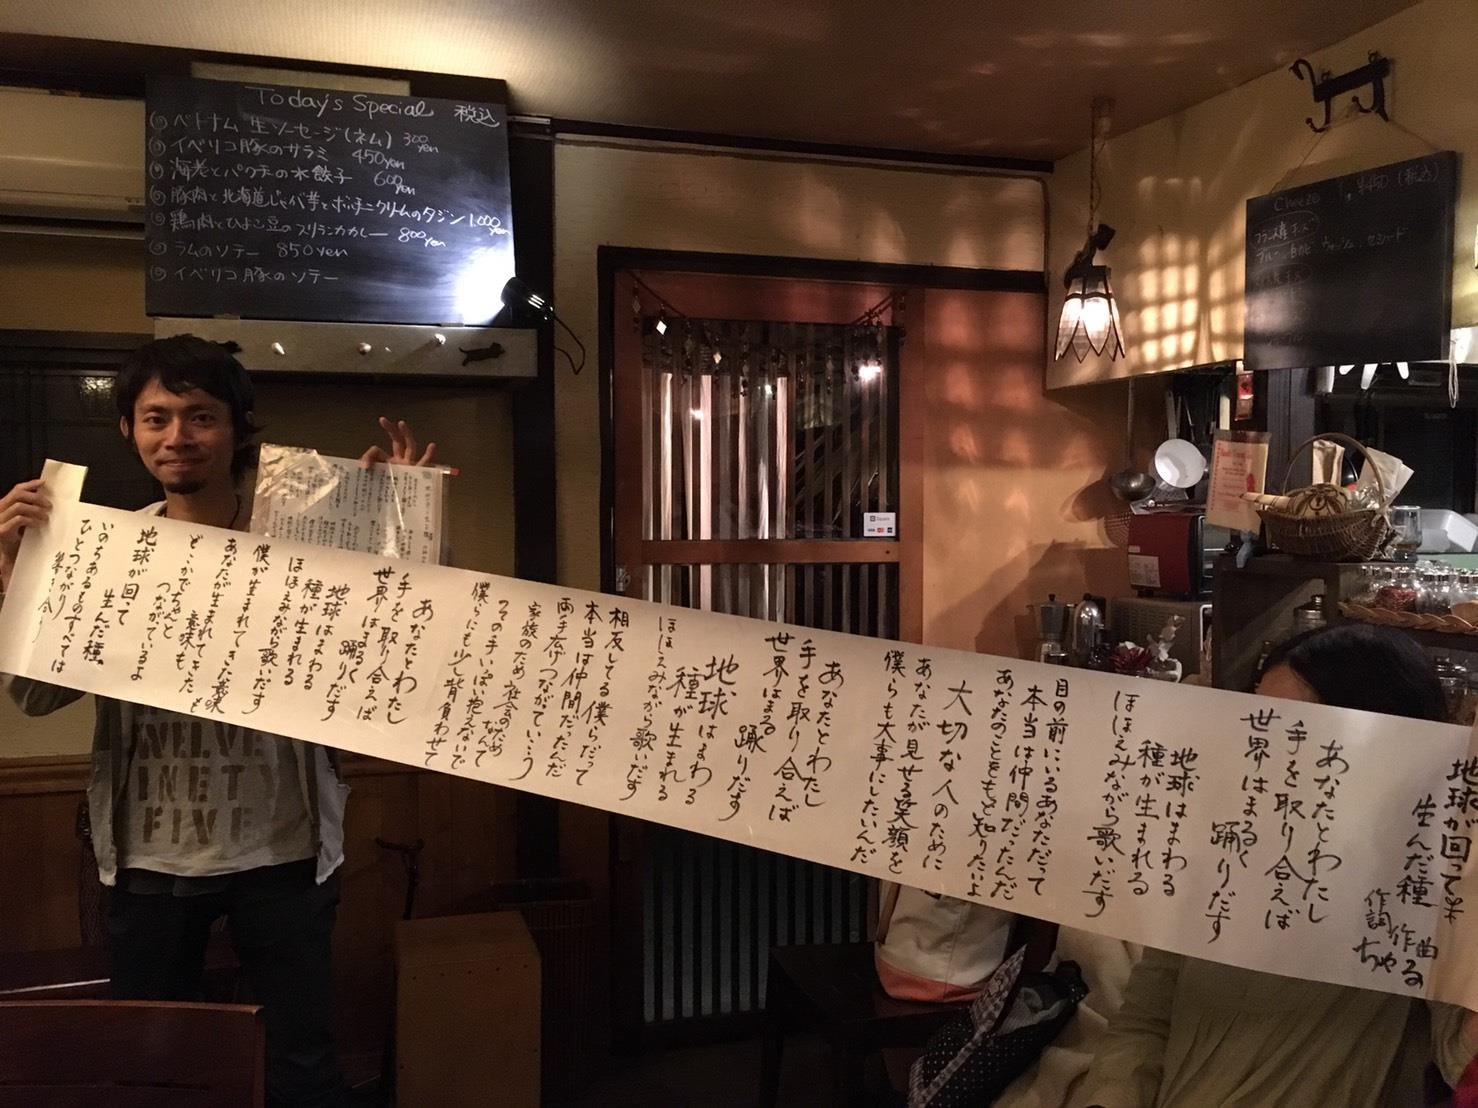 Today's Special 税込
◎ベトナム 生ソーセージ(ネム) 300yen
◎イベリコ豚のサラミ 450yen
◎海老とパクチーの水餃子 600yen
◎豚肉と北海道じゃが芋とポルチーニクリームのタジン 1,000yen
◎鶏肉とひよこ豆のスリランカカレー 800yen
◎ラムのソテー 850yen
◎イベリコ豚のソテー
Cheeze (税込)
地球が回って
生んだ種
作曲 る
作詞 ちゃ
あなたとわたし
手を取り合えば
世界はまるく
踊りだす
地球はまわる
種が生まれる
ほほえみながら歌いだす
目の前にいるあなただって
本当は仲間だったんだ
あなたのことをもっと知りたいよ
大切な人のために
あなたが見せる笑顔を
僕らも大事にしたいんだ
あなたとわたし
手を取り合えば
世界はまる
踊りだす
地球はまわる
種が生まれる
ほほえみながら歌いだす
相反してる僕らだって
本当は仲間だったんだ
両手広げつながっていこう
家族のため社会のため
なんて
その手いっぱい抱えないで
僕らにも少し背負わせて
あなたとわたし
手を取り合えば
世界はまるく
踊りだす
地球はまわる
種が生まれる
ほほえみながら歌いだす
僕が生まれてきた意味も
あなたが生まれてきた
意味も
どっかでちゃんと
つながているよ
地球が回って
生んだ種
いのちあるものすべては
ひとつながり
WELVE
INETY
FIVE